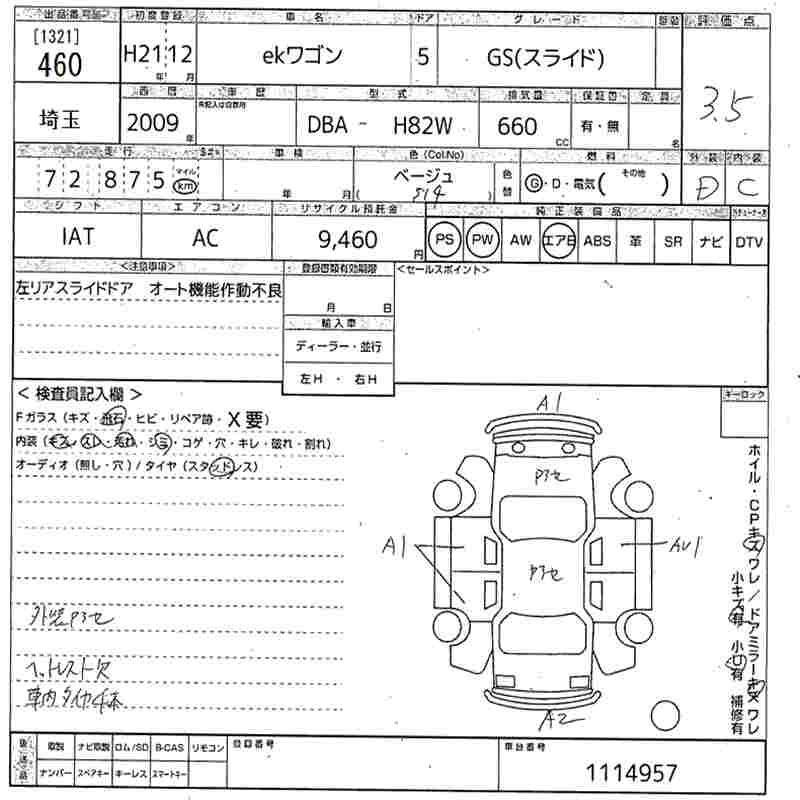 出品番号 初度登録 車名 ドア グレード 評価点
[1321]
460 H21 12 ekワゴン 5 GS(スライド) 3.5
年 月
西暦 車歴 型式 排気量 保証書 定員
未記入は自家用
埼玉 2009年 DBA - H82W 660 CC 有・無 名
走行 車検 色(Col.No) 燃料 外装 内装
72875 マイル km 年 月 ベージュ 514 色替 G・D・電気( その他 ) D C
シフト エアコン リサイクル預託金 純正装備品
IAT AC 9,460円 PS PW AW エアB ABS 革 SR ナビ DTV
<注意事項> 登録書類有効期限 <セールスポイント>
左リアスライドドア オート機能作動不良
月 日
輸入車
ディーラー・並行
左H ・ 右H
<検査員記入欄> キーロック
Fガラス(キズ・飛石・ヒビ・リペア跡・X要)
内装(キズ・スレ・汚れ・シミ・コゲ・穴・キレ・破れ・割れ)
オーディオ(無し・穴)/タイヤ(スタッドレス)
A1
P3セ
A1 AU1
P3セ
A2
外装P3セ
ヘッドレスト欠
車内タイヤ4本
ホイル・CPキズワレ/ドアミラーキズワレ
小キズ有 小凹有 補修有
後送品 取説 ナビ取説 ロム/SD B-CAS リモコン 登録番号 車台番号
ナンバー スペアキー キーレス スマートキー 1114957